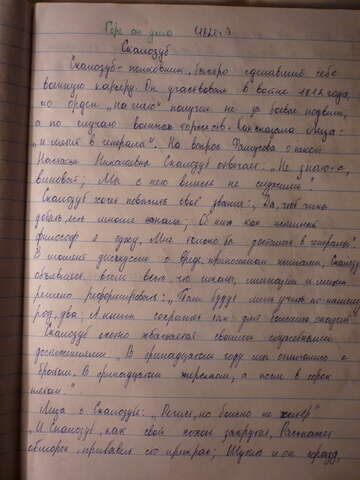 Горе от ума (1824г.)
Скалозуб
Скалозуб - полковник, быстро сделавший себе
военную карьеру. Он участвовал в войне 1812 года,
но орден "на шею" получил не за боевые подвиги,
а по случаю военных торжеств. Как сказала Лиза:
"и метит в генералы". На вопрос Фамусова о какой
Настасье Николавне Скалозуб отвечает: "Не знаю-с,
виноват; Мы с нею вместе не служили"
Скалозуб хочет повысить своё звание: "Да, чтоб чины
добыть, есть многие каналы; Об них как истинный
философ я сужу, Мне только бы досталось в генералы".
В момент дискуссии о вреде, приносимом книгами, Скалозуб
объявляет всем весть, что школы, лицеи и гимназии
решено реформировать: "Там будут лишь учить по нашему:
раз, два; А книги сохранят так: для больших оказий"
Скалозуб охотно хвастается своими служебными
достижениями "В тринадцатом году мы отличались с
братом В тринадцатом егерском, а после в сорок
пятом."
Лиза о Скалозубе: "Речист, но больно не хитёр"
"И Скалозуб, как свой хохол закрутит, Расскажет
обморок, прибавит сто прикрас; Шутить и он горазд,